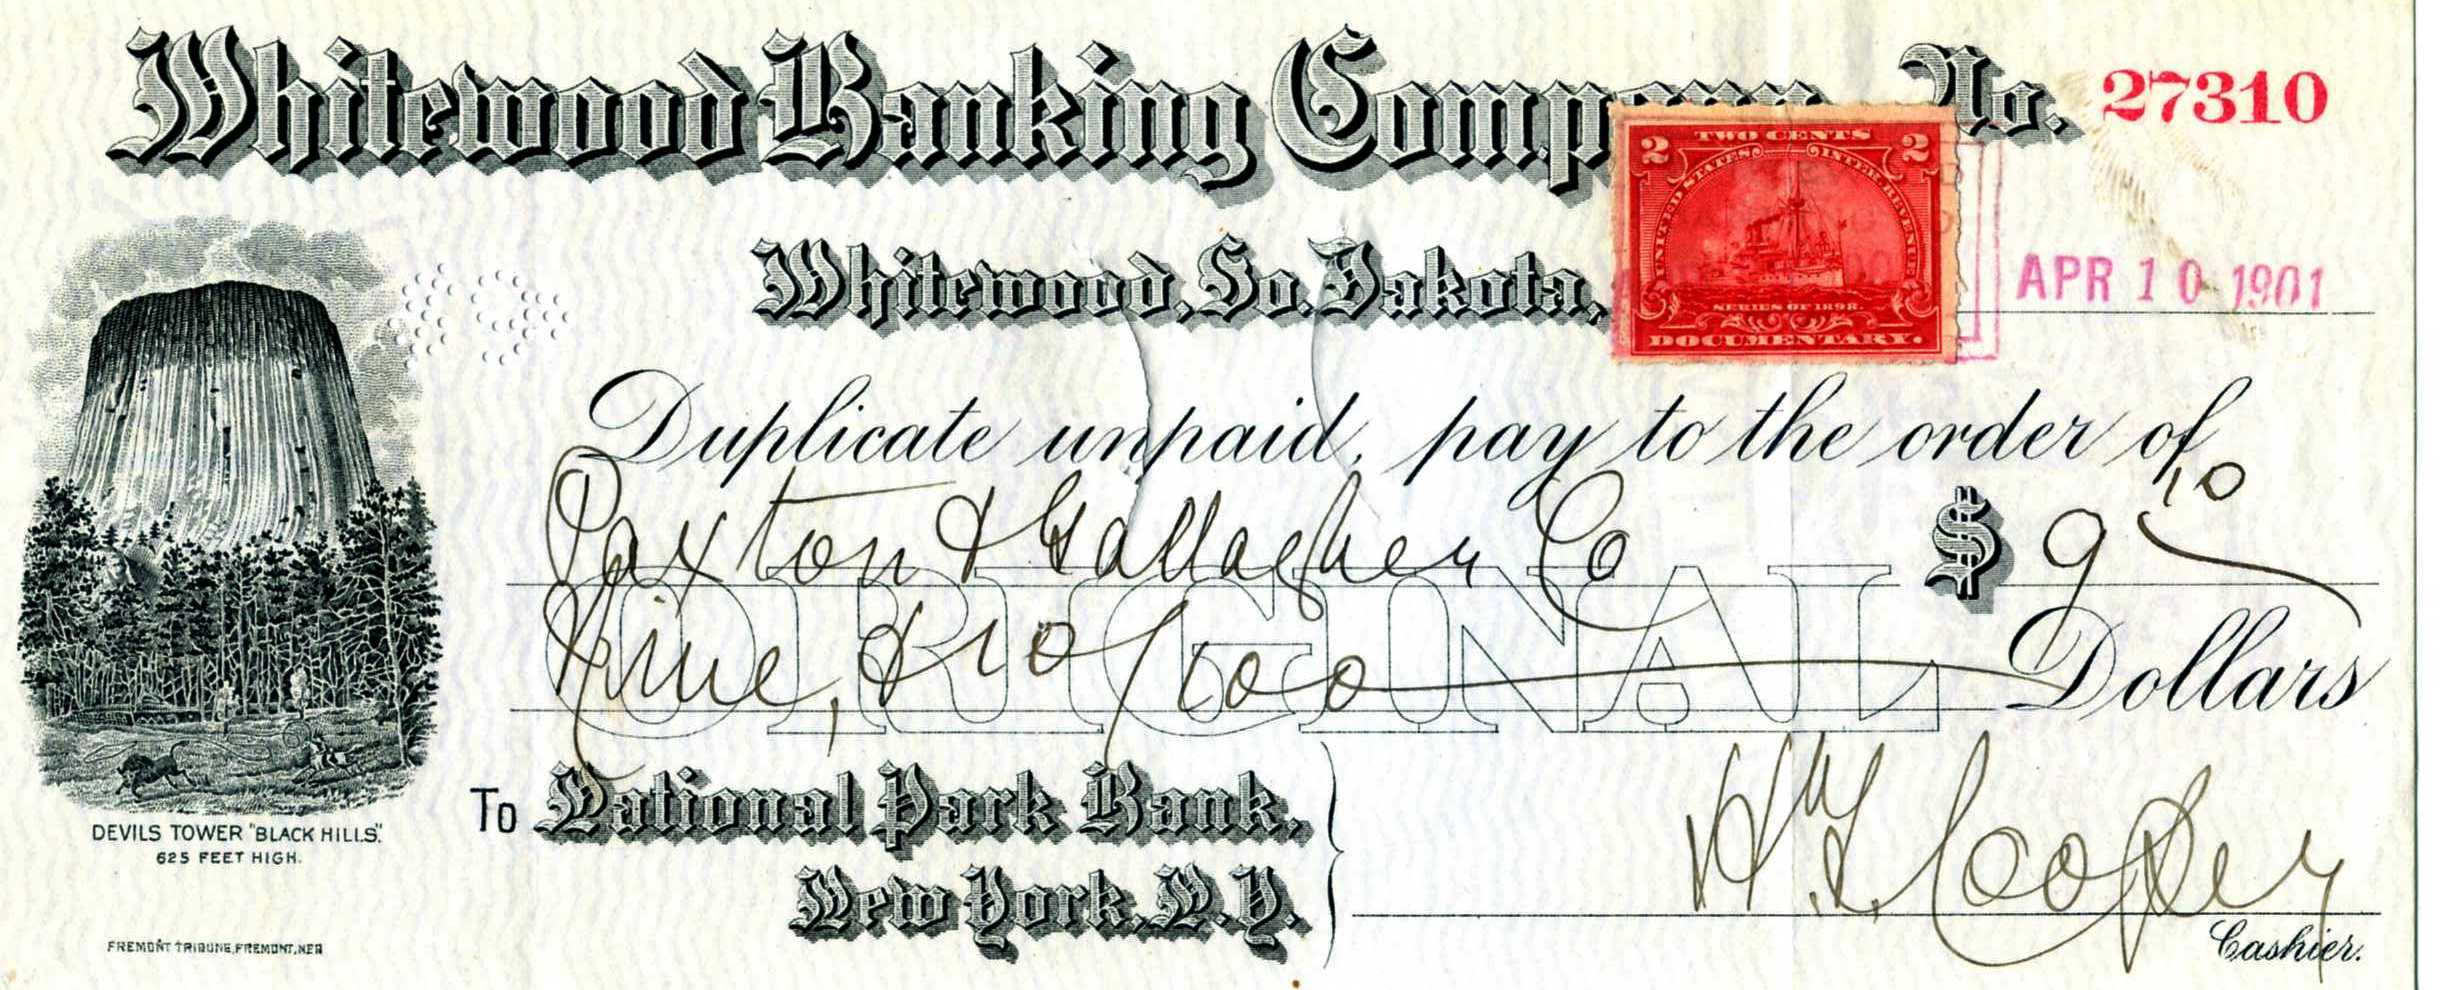 Whitewood Banking Company No. 27310
2 TWO CENTS 2
UNITED STATES INTER. REVENUE
SERIES OF 1898.
DOCUMENTARY.
Whitewood, So. Dakota, APR 10 1901
Duplicate unpaid, pay to the order of
Paxton & Gallagher Co $ 9 10
Nine, & 10/100 Dollars
ORIGINAL
To National Park Bank,
New York, N.Y.
Cooper
Cashier.
DEVILS TOWER "BLACK HILLS".
625 FEET HIGH.
FREMONT TRIBUNE, FREMONT, NEB